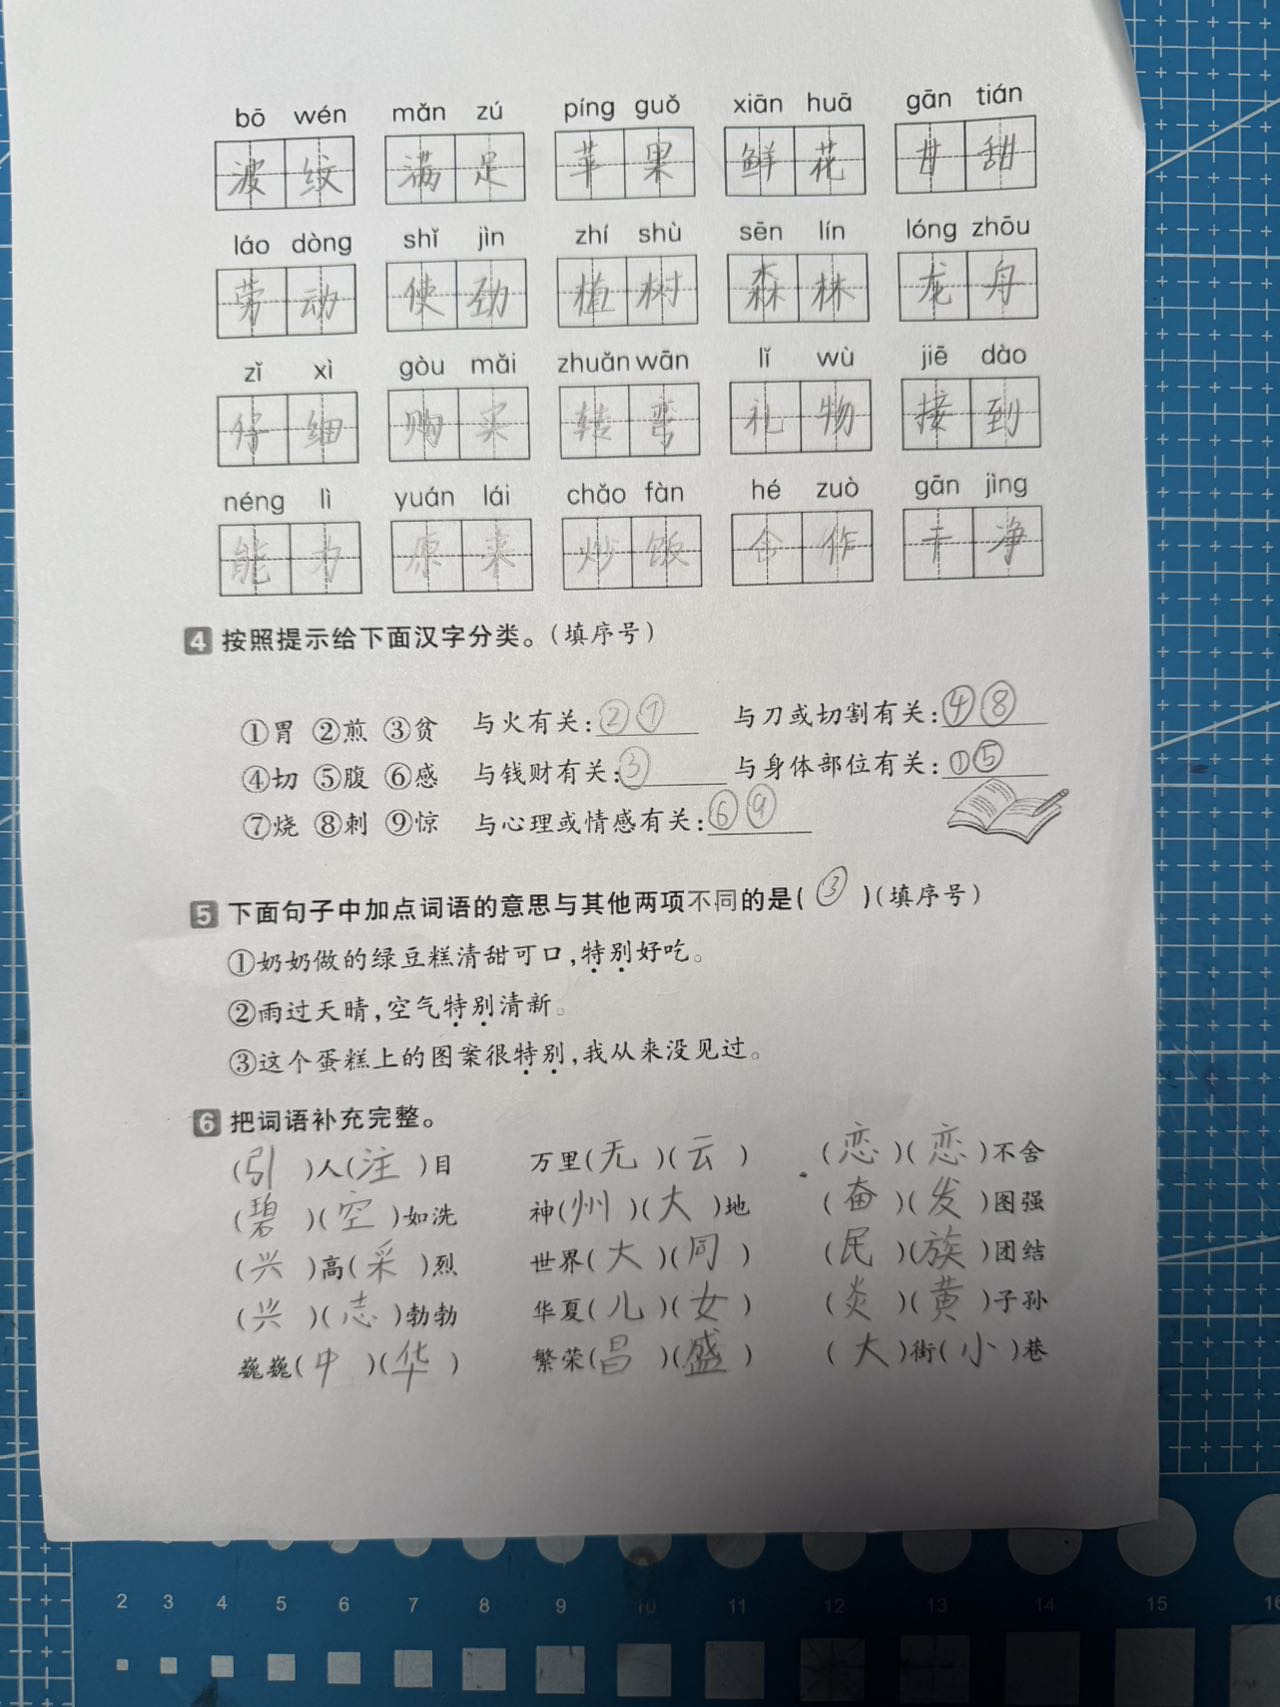 bō wén mǎn zú píng guǒ xiān huā gān tián
波纹 满足 苹果 鲜花 甘甜
láo dòng shǐ jìn zhí shù sēn lín lóng zhōu
劳动 使劲 植树 森林 龙舟
zǐ xì gòu mǎi zhuǎn wān lǐ wù jiē dào
仔细 购买 转弯 礼物 接到
néng lì yuán lái chǎo fàn hé zuò gān jìng
能力 原来 炒饭 合作 干净
4 按照提示给下面汉字分类。(填序号)
①胃 ②煎 ③贫 与火有关:②⑦ 与刀或切割有关:④⑧
④切 ⑤腹 ⑥感 与钱财有关:③ 与身体部位有关:①⑤
⑦烧 ⑧刺 ⑨惊 与心理或情感有关:⑥⑨
5 下面句子中加点词语的意思与其他两项不同的是(③)(填序号)
①奶奶做的绿豆糕清甜可口,特别好吃。
②雨过天晴,空气特别清新。
③这个蛋糕上的图案很特别,我从来没见过。
6 把词语补充完整。
(引)人(注)目 万里(无)(云) (恋)(恋)不舍
(碧)(空)如洗 神(州)(大)地 (奋)(发)图强
(兴)高(采)烈 世界(大)(同) (民)(族)团结
(兴)(志)勃勃 华夏(儿)(女) (炎)(黄)子孙
巍巍(中)(华) 繁荣(昌)(盛) (大)街(小)巷
2 3 4 5 6 7 8 9 10 11 12 13 14 15 16